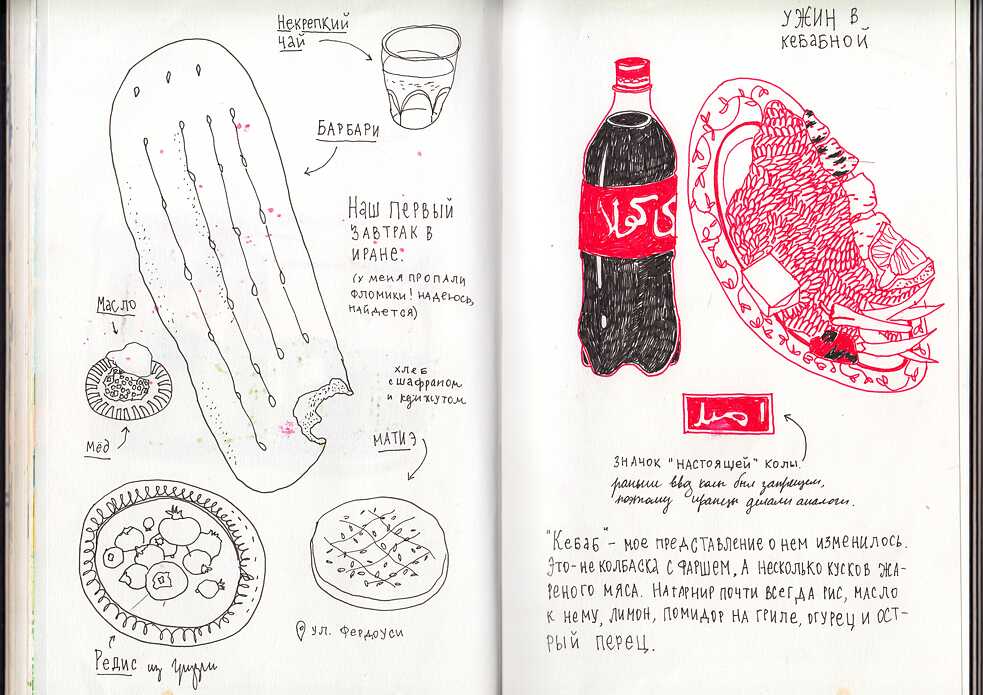 Некрепкий
чай
Барбари
Наш первый
завтрак в
Иране:
(у меня пропали
фломики! надеюсь,
найдется)
Масло
мёд
хлеб
с шафраном
и кунжутом
МАТИЭ
ул. Фердоуси
Редис из
УЖИН В
кебабной
کاکولا
اصل
значок "настоящей" колы.
раньше ввоз колы был запрещен,
поэтому иранцы делали аналоги.
"Кебаб" - мое представление о нем изменилось.
Это - не колбаска с фаршем, а несколько кусков жа-
реного мяса. На гарнир почти всегда рис, масло
к нему, лимон, помидор на гриле, огурец и ост-
рый перец.